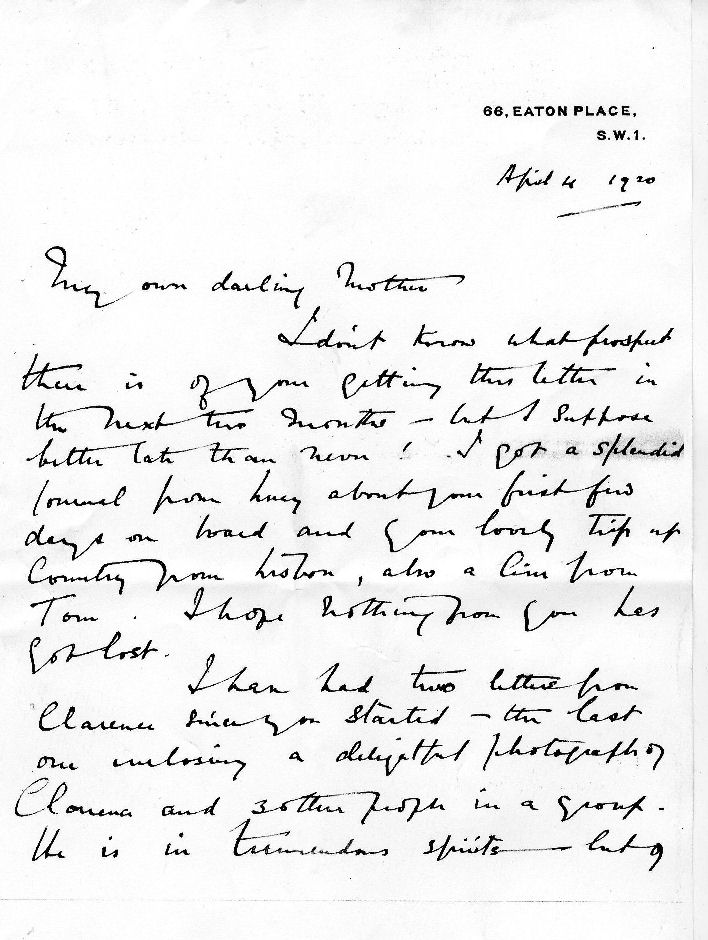 66, EATON PLACE,
S.W.1.
April 4 1920
My own darling Mother
I don't know what prospect
there is of your getting this letter in
the next two months – but I suppose
better late than never! I got a splendid
journal from Lucy about your first few
days on board and your lovely trip up
Country from Lisbon, also a line from
Tom. I hope nothing from you has
got lost.
I have had two letters from
Clarence since you started – the last
one enclosing a delightful photograph of
and 3 other people in a group.
He is in tremendous spirits – but